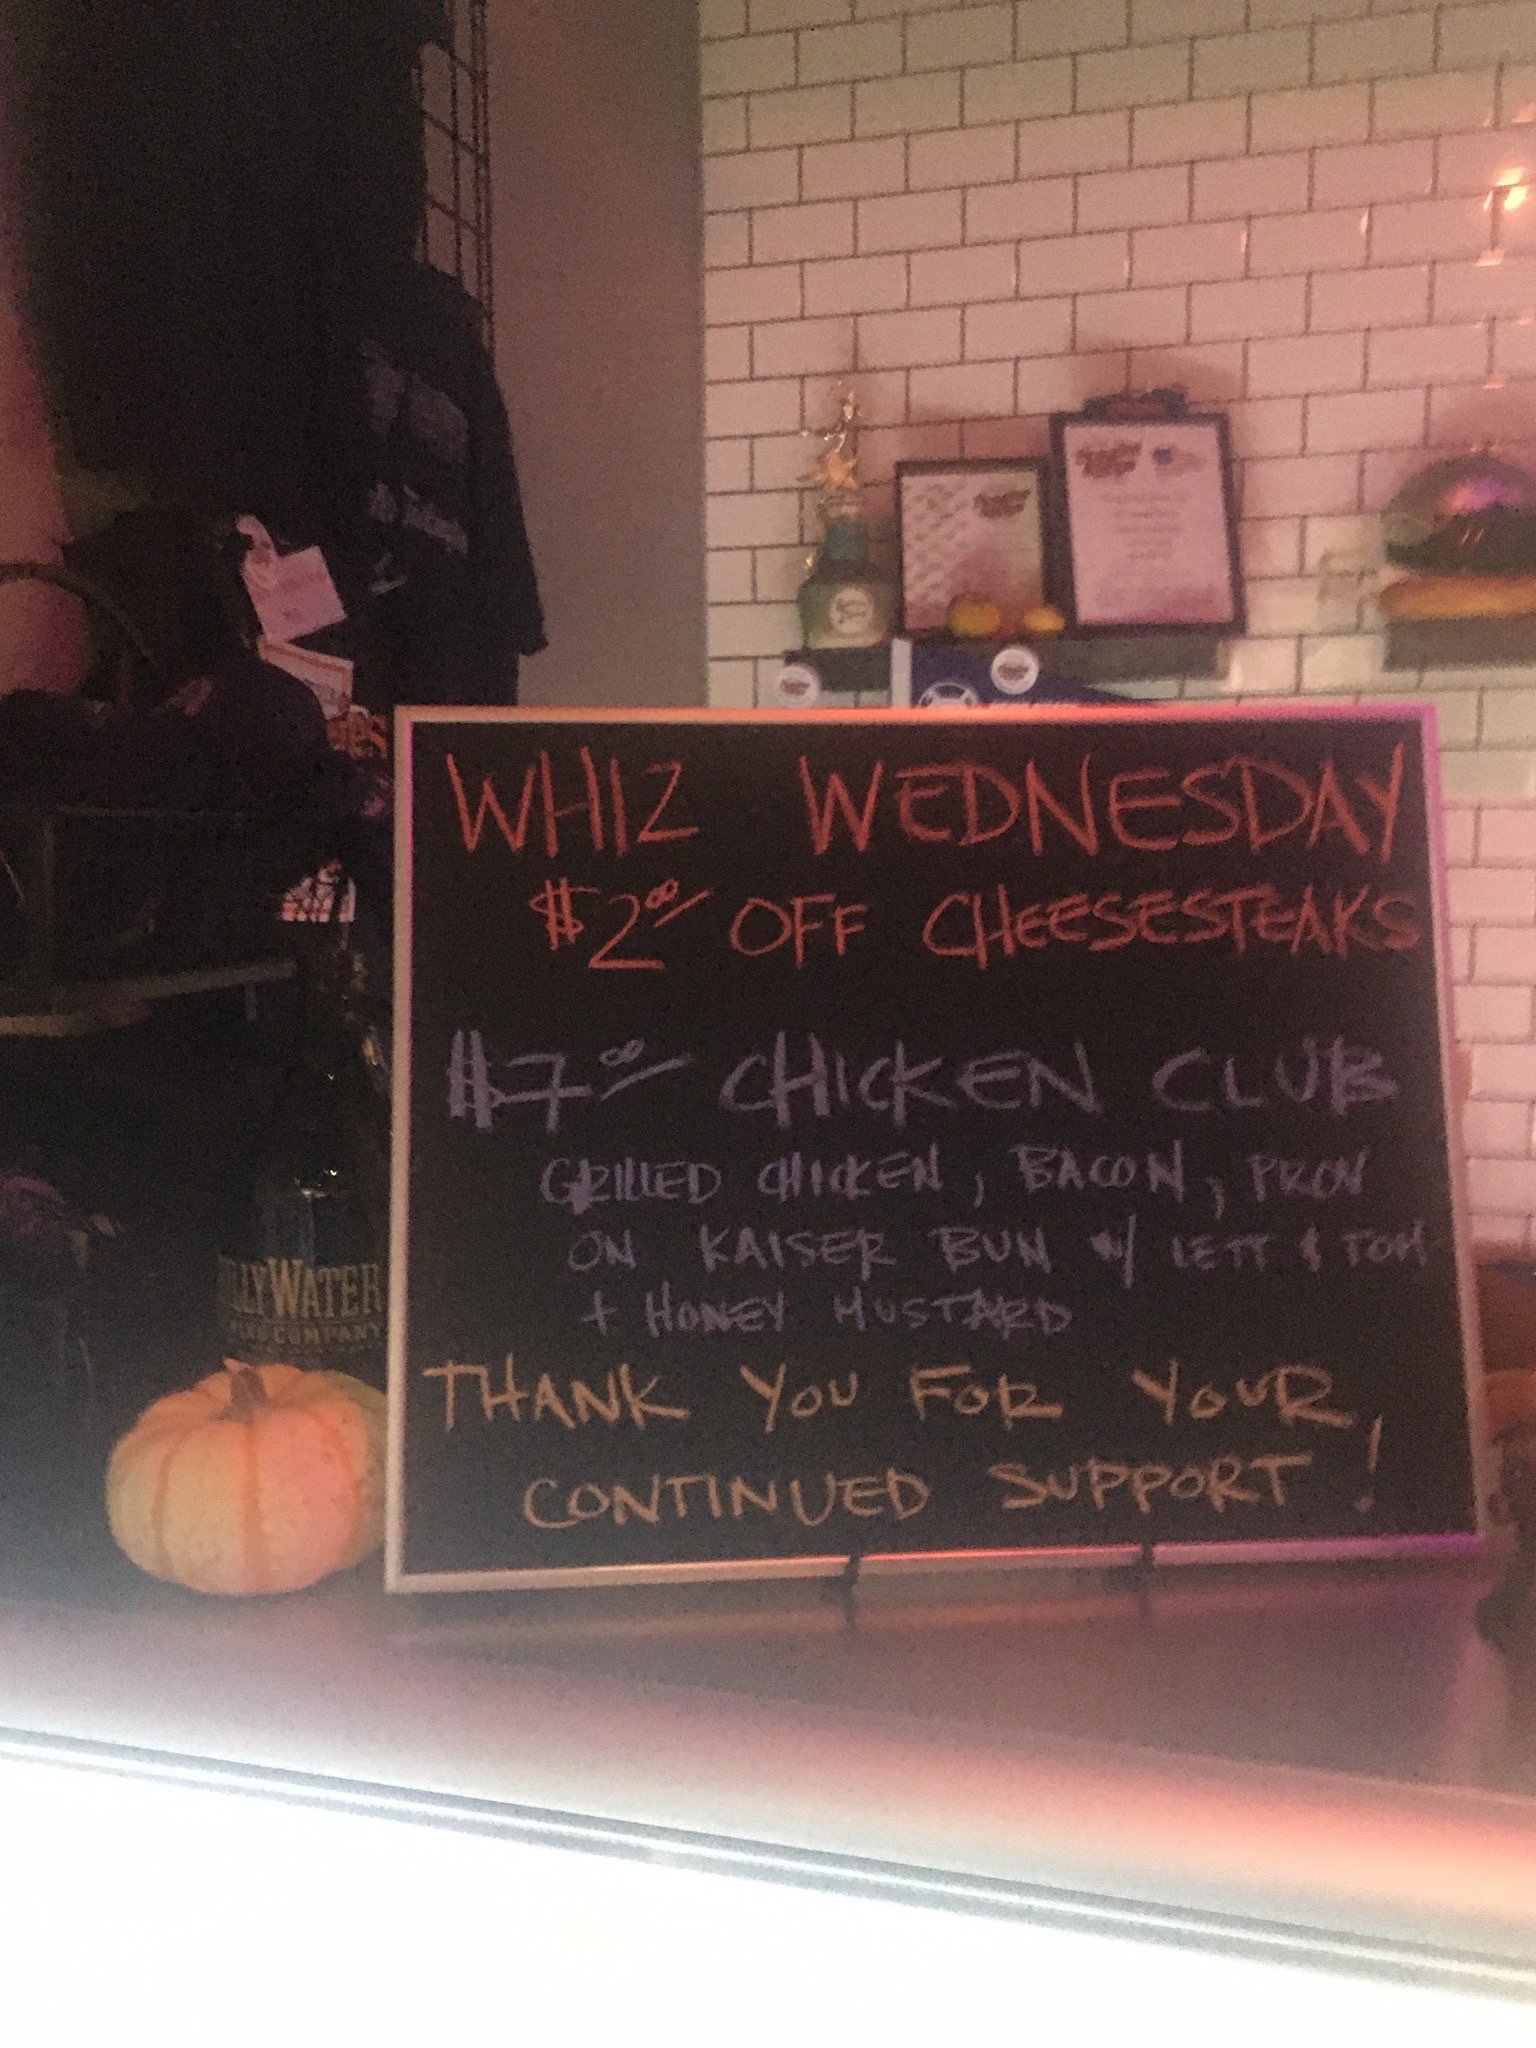 WHIZ WEDNESDAY
$2.00 OFF CHEESESTEAKS
$7.00 CHICKEN CLUB
GRILLED CHICKEN, BACON, PROV
ON KAISER BUN W/ LETT & TOM
+ HONEY MUSTARD
THANK YOU FOR YOUR
CONTINUED SUPPORT!
LLYWATER
COMPANY